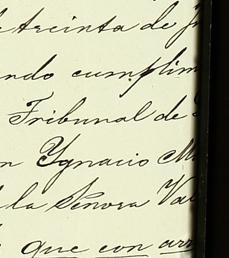 treinta de
ndo cumplim
Tribunal de
n Ygnacio M
la Señora Va
que con arr